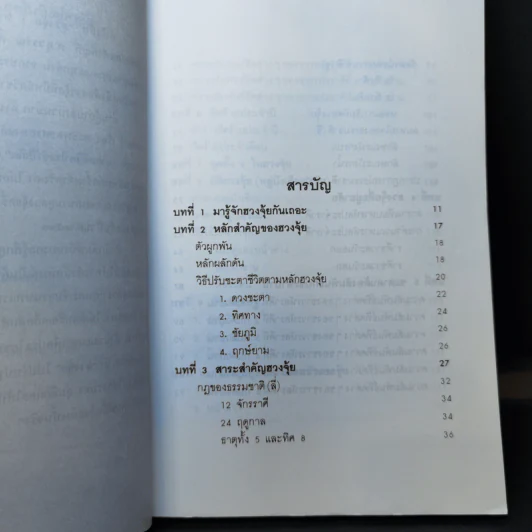 สารบัญ
บทที่ 1 มารู้จักฮวงจุ้ยกันเถอะ 11
บทที่ 2 หลักสำคัญของฮวงจุ้ย 17
ตัวผูกพัน 18
หลักผลักดัน 18
วิธีปรับชะตาชีวิตตามหลักฮวงจุ้ย 20
1. ดวงชะตา 22
2. ทิศทาง 24
3. ชัยภูมิ 26
4. ฤกษ์ยาม 26
บทที่ 3 สาระสำคัญฮวงจุ้ย 27
กฎของธรรมชาติ (ลี่) 32
12 จักรราศี 34
24 ฤดูกาล 34
ธาตุทั้ง 5 และทิศ 8 36